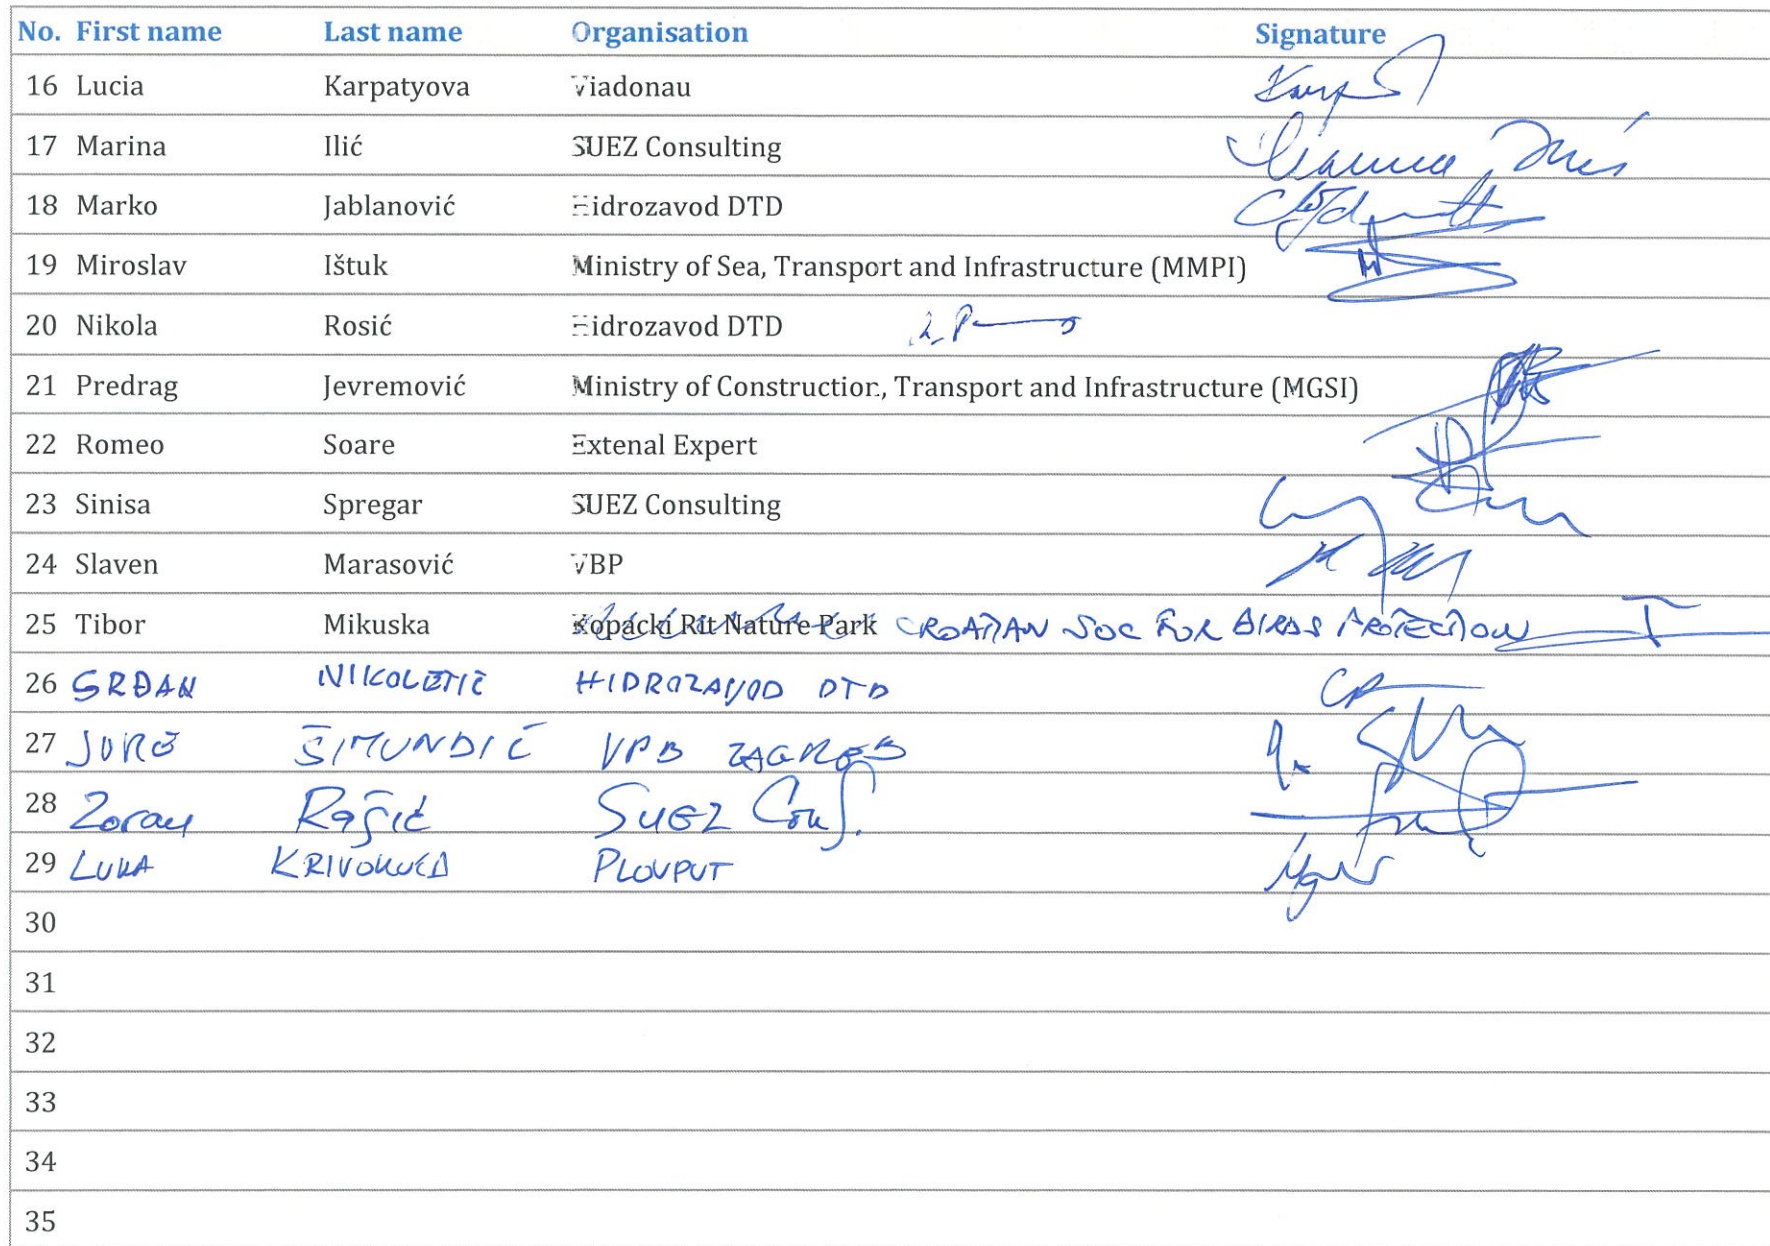 No. First name Last name Organisation Signature
16 Lucia Karpatyova Viadonau
17 Marina Ilić SUEZ Consulting Marina Ilić
18 Marko Jablanović Hidrozavod DTD
19 Miroslav Ištuk Ministry of Sea, Transport and Infrastructure (MMPI)
20 Nikola Rosić Hidrozavod DTD
21 Predrag Jevremović Ministry of Construction, Transport and Infrastructure (MGSI)
22 Romeo Soare Extenal Expert
23 Sinisa Spregar SUEZ Consulting
24 Slaven Marasović VBP
25 Tibor Mikuska Kopački Rit Nature Park CROATIAN SOC FOR BIRDS PROTECTION
26 SRĐAN NIKOLETIĆ HIDROZAVOD DTD
27 JURE ŠIMUNDIĆ VPB ZAGREB
28 Zoran Rašić SUEZ Cons.
29 LUKA KRIVOKUĆA PLOVPUT
30
31
32
33
34
35